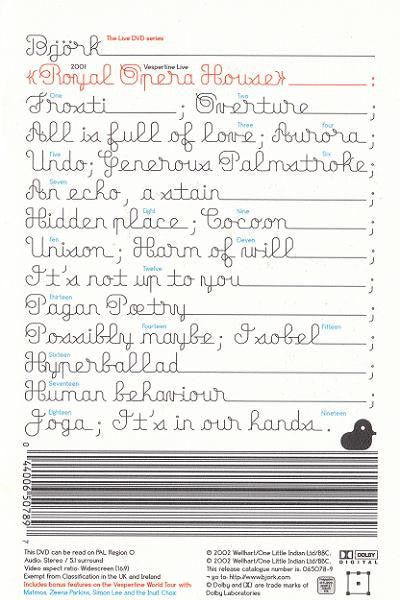 Björk The Live DVD series
2001 Vespertine Live
«Royal Opera House» ;
One Two
Frosti ; Overture
Three Four
All is full of love; Aurora;
Five Six
Undo; Generous Palmstroke;
Seven
An echo, a stain ;
Eight Nine
Hidden place; Cocoon ;
Ten Eleven
Unison; Harm of will ;
Twelve
It's not up to you ;
Thirteen
Pagan Poetry ;
Fourteen Fifteen
Possibly maybe; Isobel ;
Sixteen
Hyperballad ;
Seventeen
Human behaviour ;
Eighteen Nineteen
Joga; It's in our hands.
0 44006 50789 7
This DVD can be read on PAL Region 0
Audio: Stereo / 5.1 surround
Video aspect ratio: Widescreen (16:9)
Exempt from Classification in the UK and Ireland
Includes bonus features on the Vespertine World Tour with
Matmos, Zeena Parkins, Simon Lee and the Inuit Choir
℗ 2002 Wellhart/One Little Indian Ltd/BBC.
© 2002 Wellhart/One Little Indian Ltd/BBC.
This release catalogue number is. 065078-9
¬ go to: http://www.bjork.com
© Dolby and DD are trade marks of
Dolby Laboratories
DOLBY
DIGITAL